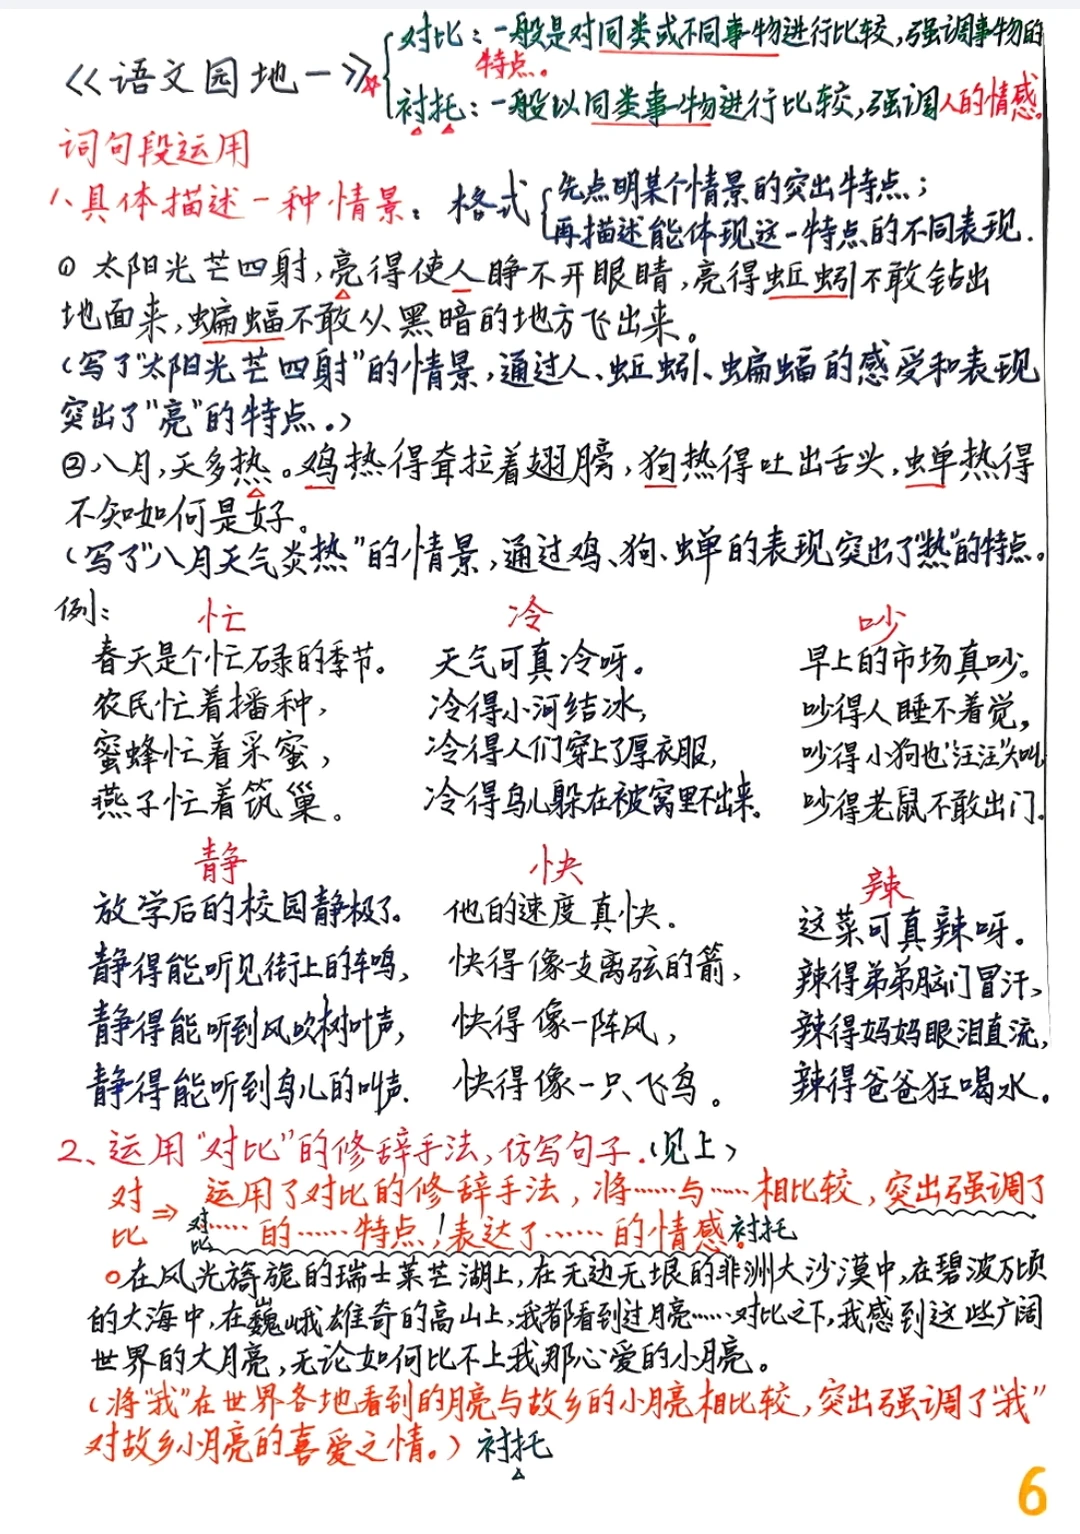 《语文园地一》☆
对比：一般是对同类或不同事物进行比较，强调事物的
特点。
衬托：一般以同类事物进行比较，强调人的情感。
词句段运用
1、具体描述一种情景：格式
先点明某个情景的突出特点；
再描述能体现这一特点的不同表现.
① 太阳光芒四射，亮得使人睁不开眼睛，亮得蚯蚓不敢钻出
地面来，蝙蝠不敢从黑暗的地方飞出来。
（写了“太阳光芒四射”的情景，通过人、蚯蚓、蝙蝠的感受和表现
突出了“亮”的特点。）
②八月，天多热。鸡热得耷拉着翅膀，狗热得吐出舌头，蝉热得
不知如何是好。
（写了“八月天气炎热”的情景，通过鸡、狗、蝉的表现突出了“热”的特点。
例：
忙
春天是个忙碌的季节。
农民忙着播种，
蜜蜂忙着采蜜，
燕子忙着筑巢。
冷
天气可真冷呀。
冷得小河结冰，
冷得人们穿上了厚衣服，
冷得鸟儿躲在被窝里不出来。
吵
早上的市场真吵。
吵得人睡不着觉，
吵得小狗也“汪汪”大叫
吵得老鼠不敢出门.
静
放学后的校园静极了。
静得能听见街上的车鸣，
静得能听到风吹树叶声，
静得能听到鸟儿的叫声.
快
他的速度真快.
快得像一支离弦的箭，
快得像一阵风，
快得像一只飞鸟。
辣
这菜可真辣呀。
辣得弟弟脑门冒汗，
辣得妈妈眼泪直流，
辣得爸爸狂喝水。
2、运用“对比”的修辞手法，仿写句子.（见上）
对比⇒运用了对比的修辞手法，将……与……相比较，突出强调了
对比……的……特点！表达了……的情感。衬托
○在风光旖旎的瑞士莱芒湖上，在无边无垠的非洲大沙漠中，在碧波万顷
的大海中，在巍峨雄奇的高山上，我都看到过月亮……对比之下，我感到这些广阔
世界的大月亮，无论如何比不上我那心爱的小月亮。
（将“我”在世界各地看到的月亮与故乡的小月亮相比较，突出强调了“我”
对故乡小月亮的喜爱之情。）衬托
6